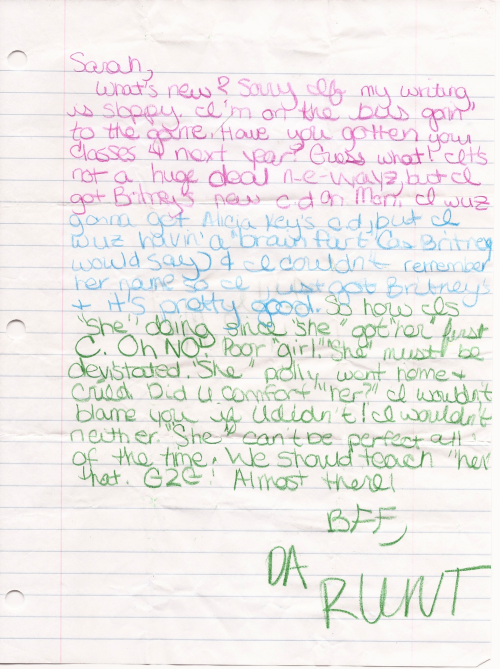 Sarah,
What's new? Sorry If my writing
is sloppy. I'm on the bus goin'
to the game. Have you gotten your
classes 4 next year? Guess what! It's
not a huge deal n-e-wayz, but I
got Britney's new c.d on Mon. I wuz
gonna get Alicia Key's c.d, but I
wuz havin' a "brain fart" (as Britney
would say) & I couldn't remember
her name so I just got Britney's
+ it's pretty good. So how Is
"She" doing since "she" got "her" first
C. Oh NO! Poor "girl." "She" must be
devistated. "She" prolly went home +
cried. Did u comfort "her?" I wouldn't
blame you if U didn't! I wouldn't
neither. "She" can't be perfect all
of the time. We should teach "her"
that. G2G! Almost there!
BFF,
DA
RUNT